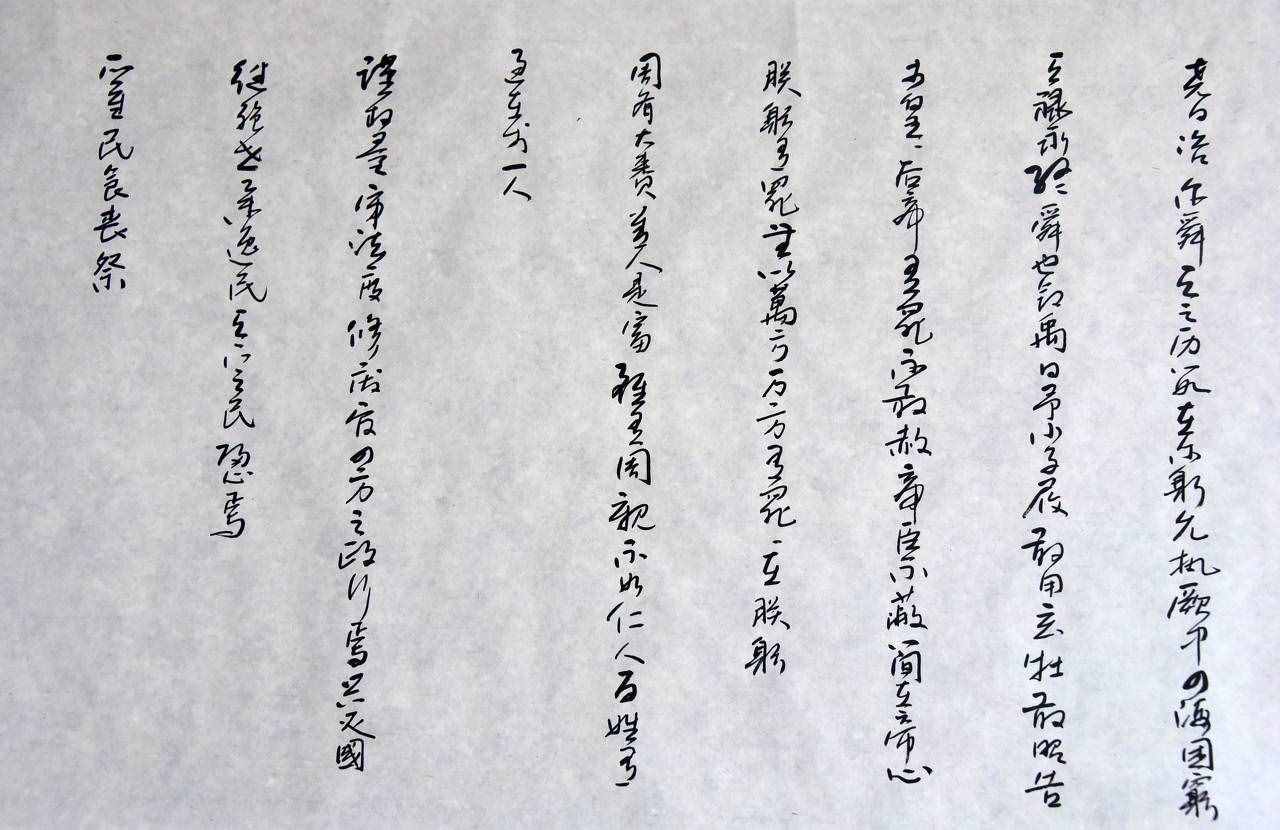 堯曰咨尔舜天之历数在尔躬允执厥中四海困窮
天禄永終舜也命禹曰予小子履敢用玄牡敢昭告
于皇〻后帝有罪不敢赦帝臣不蔽简在帝心
朕躬有罪無以萬方万方有罪〻在朕躬
周有大賚善人是富雖有周親不如仁人百姓有
過在予一人
謹权量审法度修廢官四方之政行焉兴灭國
继绝世举逸民天下之民归心焉
所重民食喪祭